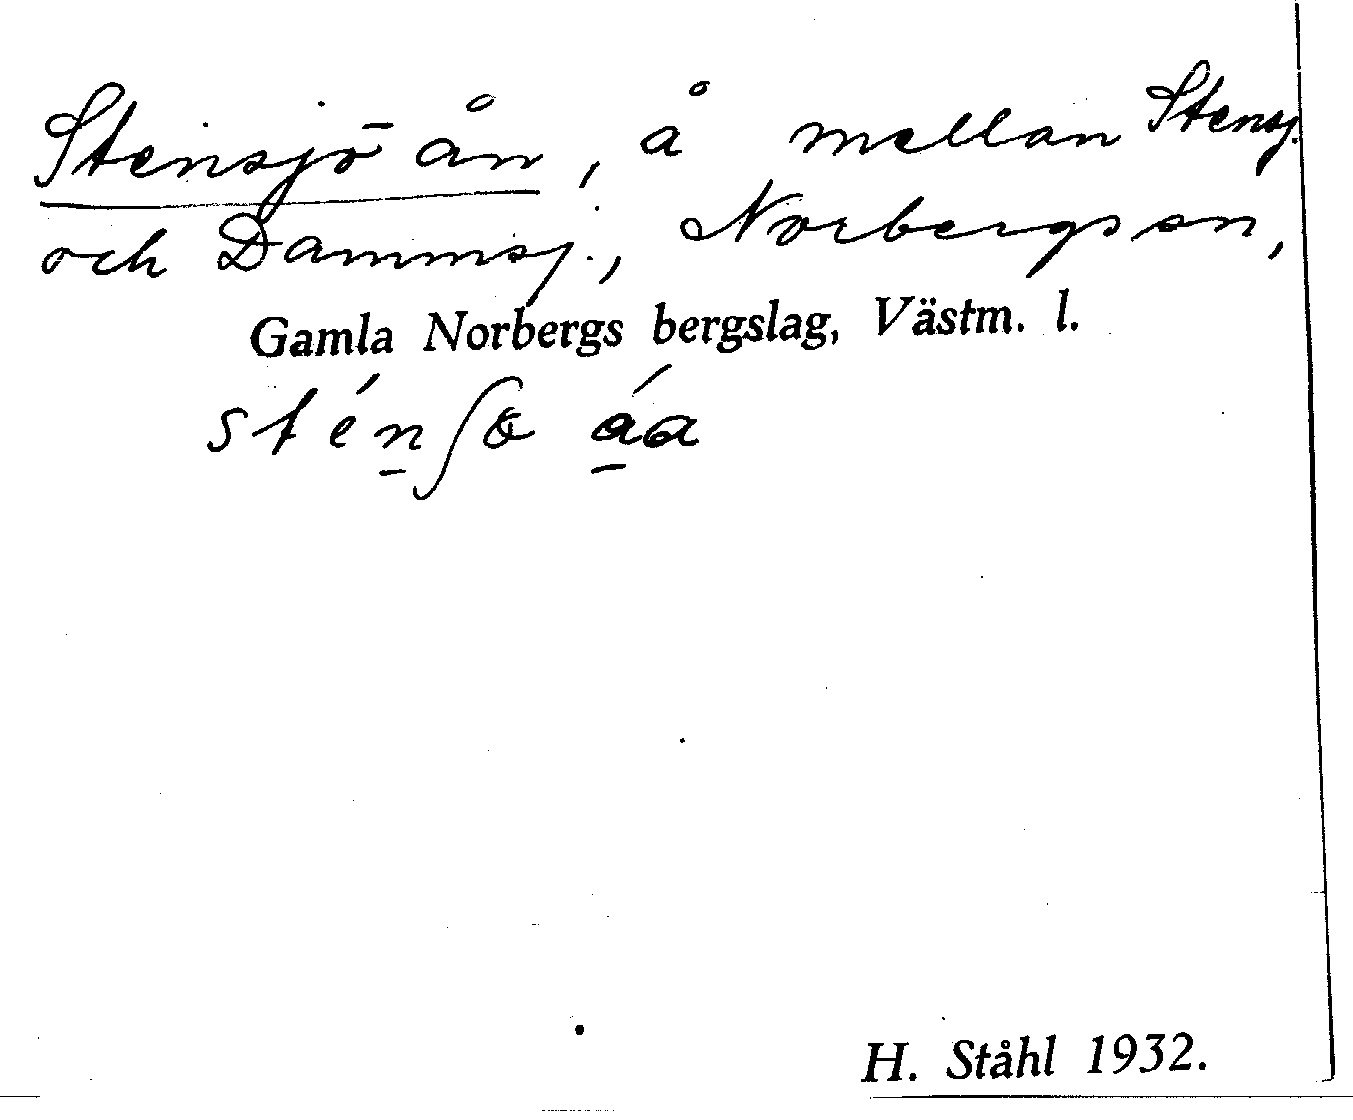 Stensjö ån, å mellan Stensj.
och Dammsj., Norbergs sn,
Gamla Norbergs bergslag, Västm. l.
sténʃo áa
H. Ståhl 1932.